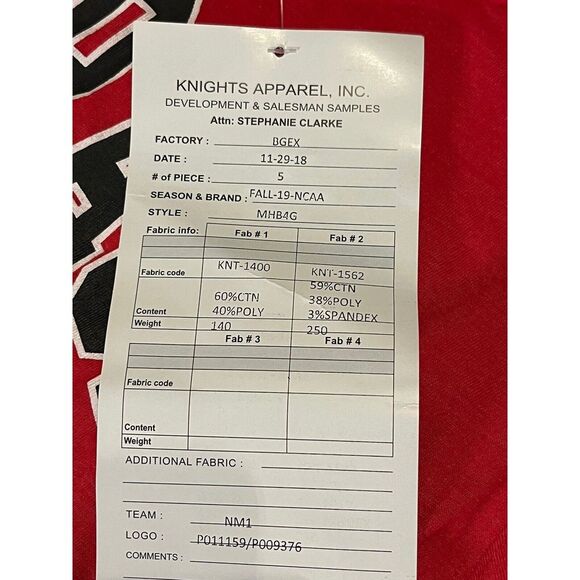 KNIGHTS APPAREL, INC.
DEVELOPMENT & SALESMAN SAMPLES
Attn: STEPHANIE CLARKE
FACTORY : BGEX
DATE : 11-29-18
# of PIECE : 5
SEASON & BRAND : FALL-19-NCAA
STYLE : MHB4G
Fabric info: Fab # 1 Fab # 2
Fabric code KNT-1400 KNT-1562
59%CTN
60%CTN 38%POLY
Content 40%POLY 3%SPANDEX
Weight 140 250
Fab # 3 Fab # 4
Fabric code
Content
Weight
ADDITIONAL FABRIC :
TEAM : NM1
LOGO : P011159/P009376
COMMENTS :